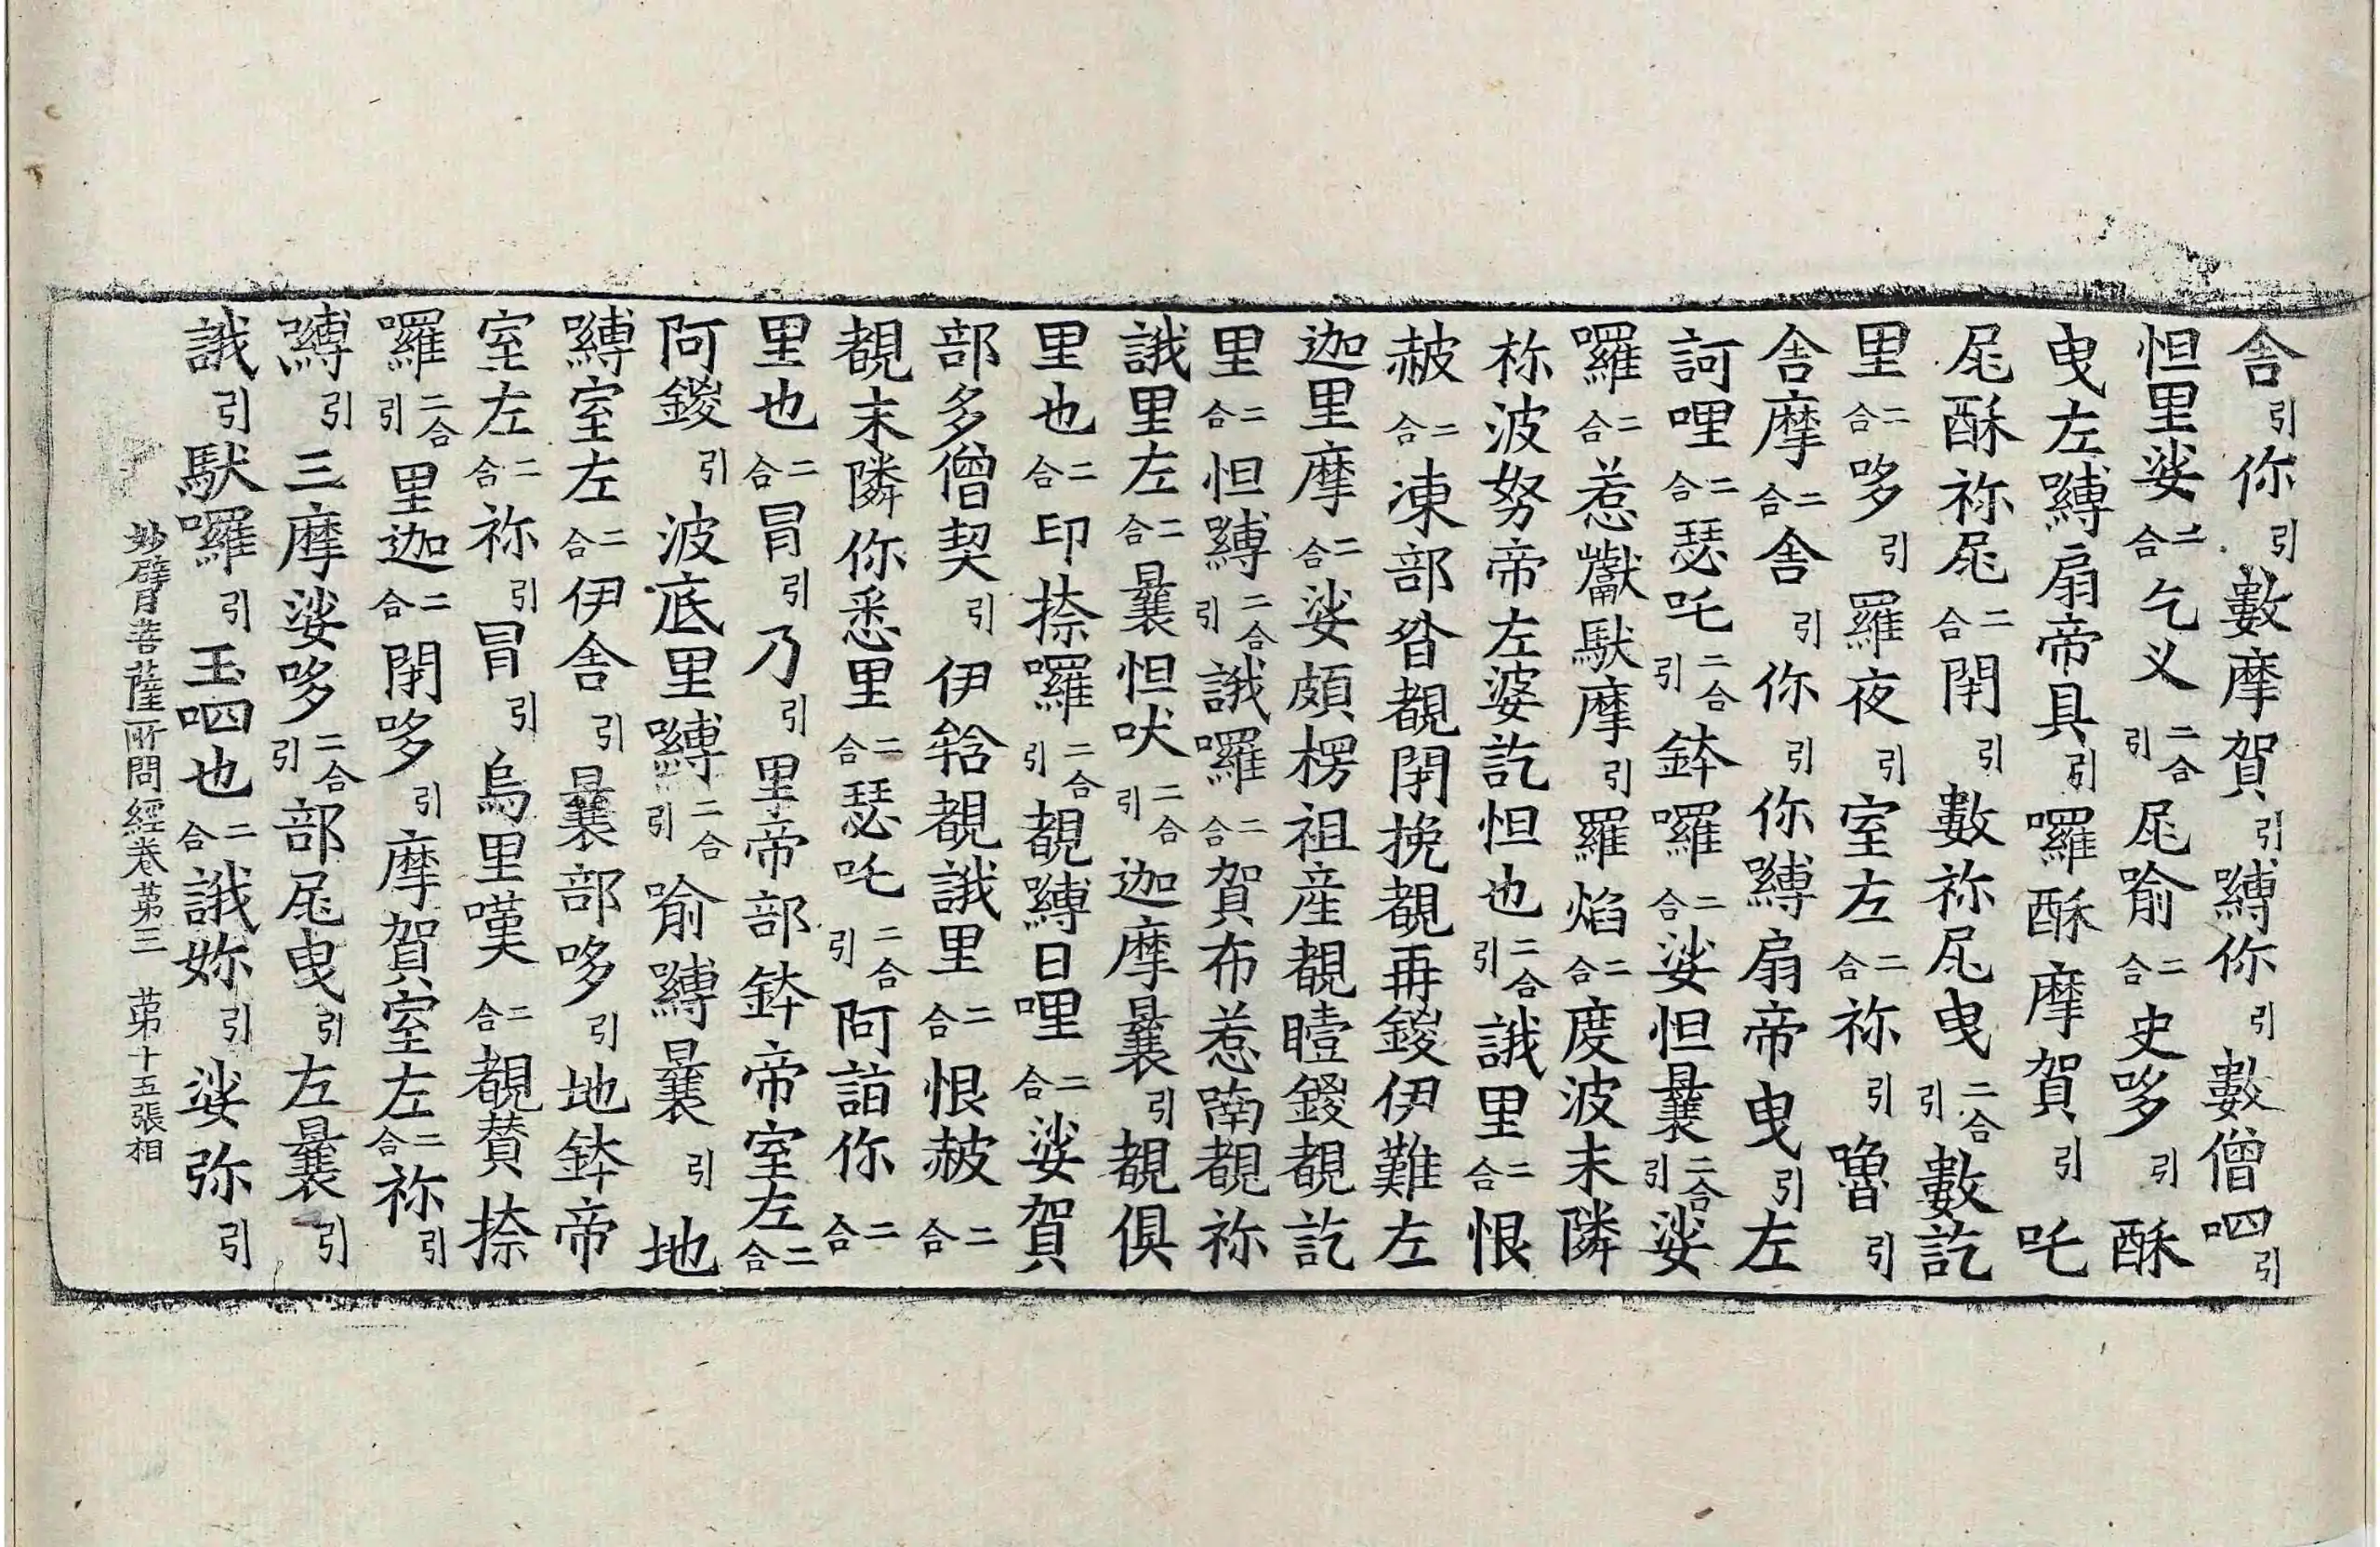 舍引你引數摩賀引嚩你引數僧呬引
怛里娑二合乞义二合引尾喻二合史哆引酥
曳左嚩扇帝具引囉酥摩賀引吒
尾酥祢尾二合閉引數祢尾曳二合引數訖
里二合哆引羅夜引室左二合祢引嚕引
舍摩二合舍引你引你嚩扇帝曳引左
訶哩二合瑟吒二合引鉢囉二合娑怛曩二合引娑
囉二合惹巘馱摩引羅焰二合度波末隣
祢波努帝左婆訖怛也二合引誐里二合恨
赧二合凍部昝覩閉挽覩再鍐伊難左
迦里摩二合娑頗楞祖産覩曀鍐覩訖
里二合怛嚩二合引誐囉二合賀布惹喃覩祢
誐里左二合曩怛吠二合引迦摩曩引覩俱
里也二合印捺囉二合引覩嚩日哩二合娑賀
部多僧契引伊鋡覩誐里二合恨赧二合
覩末隣你悉里二合瑟吒二合引阿詣你二合
里也二合冐引乃引里帝部鉢帝室左二合
阿鍐引波底里嚩二合引喻嚩曩引地
嚩室左二合伊舍引曩部哆引地鉢帝
室左二合祢引冐引烏里嘆二合覩賛捺
囉二合引里迦二合閉哆引摩賀室左二合祢引
嚩引三摩娑哆二合引部尾曳引左曩引
誐引馱囉引玉呬也二合誐妳引娑弥引
妙臂菩薩所問經卷第三 第十五張相